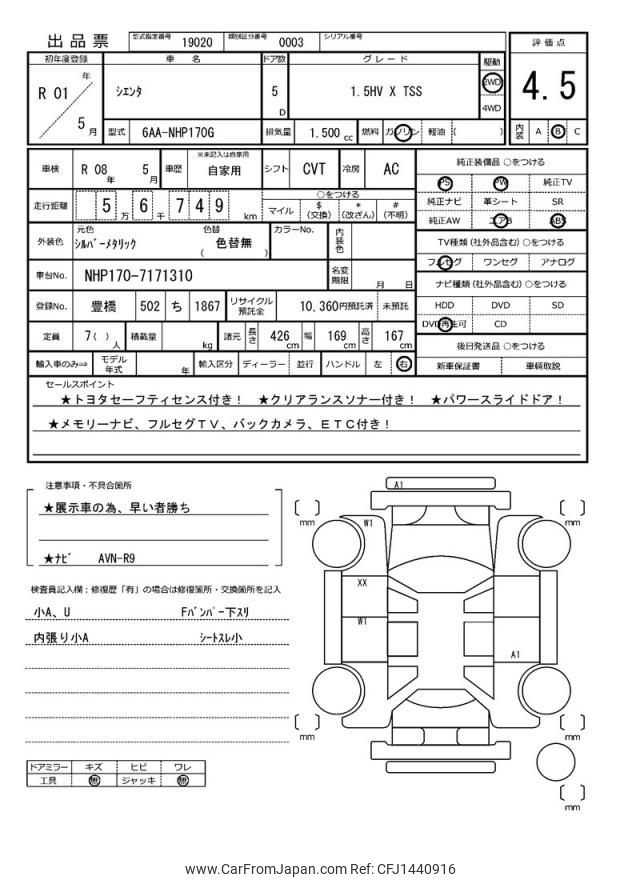 出品票 型式指定番号 19020 類別区分番号 0003 シリアル番号
初年度登録 車名 ドア数 グレード 駆動 評価点
R 01 年 5 月 シエンタ 5 D 1.5HV X TSS 2WD 4WD 4.5
型式 6AA-NHP170G 排気量 1.500 cc 燃料 ガソリン 軽油 ( ) 内装 A B C
車検 R 08 年 5 月 車歴 ※未記入は自家用 自家用 シフト CVT 冷房 AC
走行距離 5 万 6 千 7 4 9 km ○をつける マイル $ (交換) * (改ざん) # (不明)
外装色 元色 シルバーメタリック 色替 ( 色替無 ) カラーNo. 内装色
車台No. NHP170-7171310 名変期限 月 日
登録No. 豊橋 502 ち 1867 リサイクル預託金 10,360円預託済 未預託
定員 7 ( ) 人 積載量 kg 諸元 長さ 426 cm 幅 169 cm 高さ 167 cm
輸入車のみ⇒ モデル年式 年 輸入区分 ディーラー 並行 ハンドル 左 右
純正装備品 ○をつける
PS PW 純正TV
純正ナビ 革シート SR
純正AW エアB ABS
TV種類 (社外品含む) ○をつける
フルセグ ワンセグ アナログ
ナビ種類 (社外品含む) ○をつける
HDD DVD SD
DVD再生可 CD
後日発送品 ○をつける
新車保証書 車輌取説
セールスポイント
★トヨタセーフティセンス付き! ★クリアランスソナー付き! ★パワースライドドア!
★メモリーナビ、フルセグTV、バックカメラ、ETC付き!
注意事項・不具合箇所
★展示車の為、早い者勝ち
★ナビ AVN-R9
検査員記入欄:修復歴「有」の場合は修復箇所・交換箇所を記入
小A、U Fバンパー下スリ
内張り小A シートスレ小
ドアミラー キズ ヒビ ワレ
工具 無 ジャッキ 無
A1
W1
XX
W1
A1
mm
mm
mm
mm
mm
www.CarFromJapan.com Ref: CFJ1440916